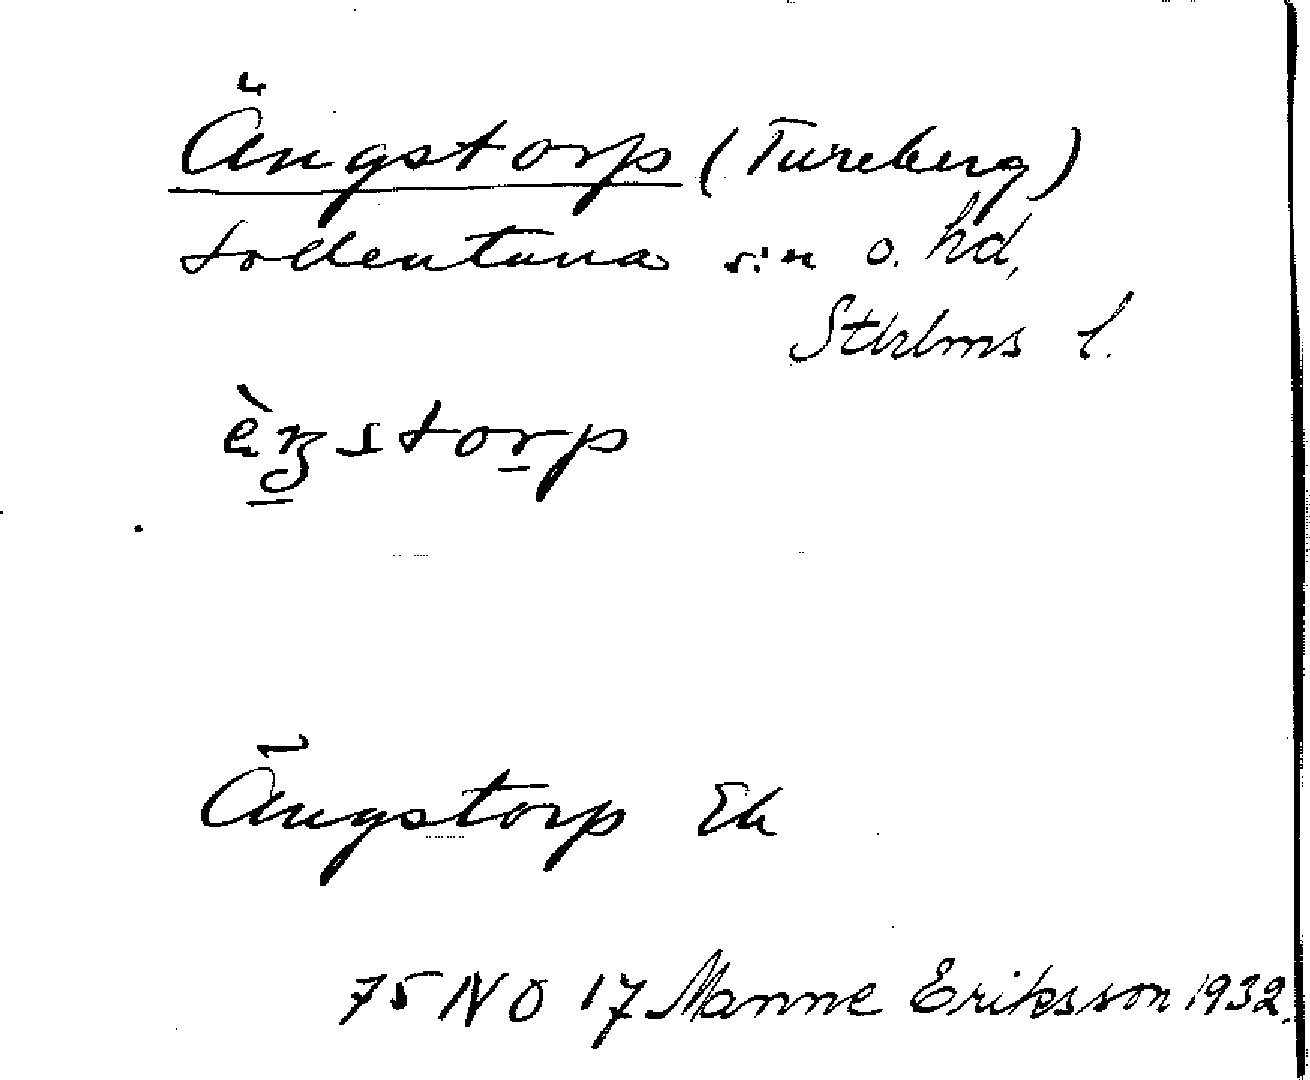 Ängstorp (Tureberg)
Sollentuna sn o. hd,
Sthlms l.
èŋstorp
Ängstorp Ek
75 NO 17 Manne Eriksson 1932.